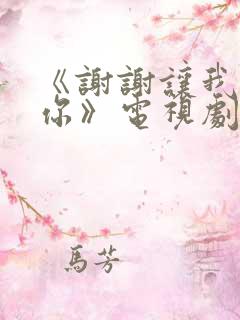 《謝謝讓我
你》電視劇
馬芳